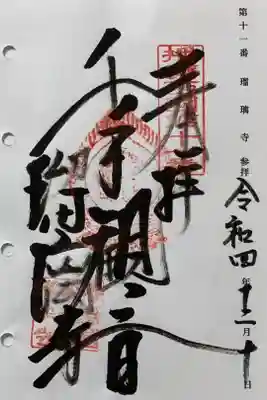 第十一番 瑠璃寺 参拝
令和四年十二月十日
奉拝
千手観音
瑠璃寺